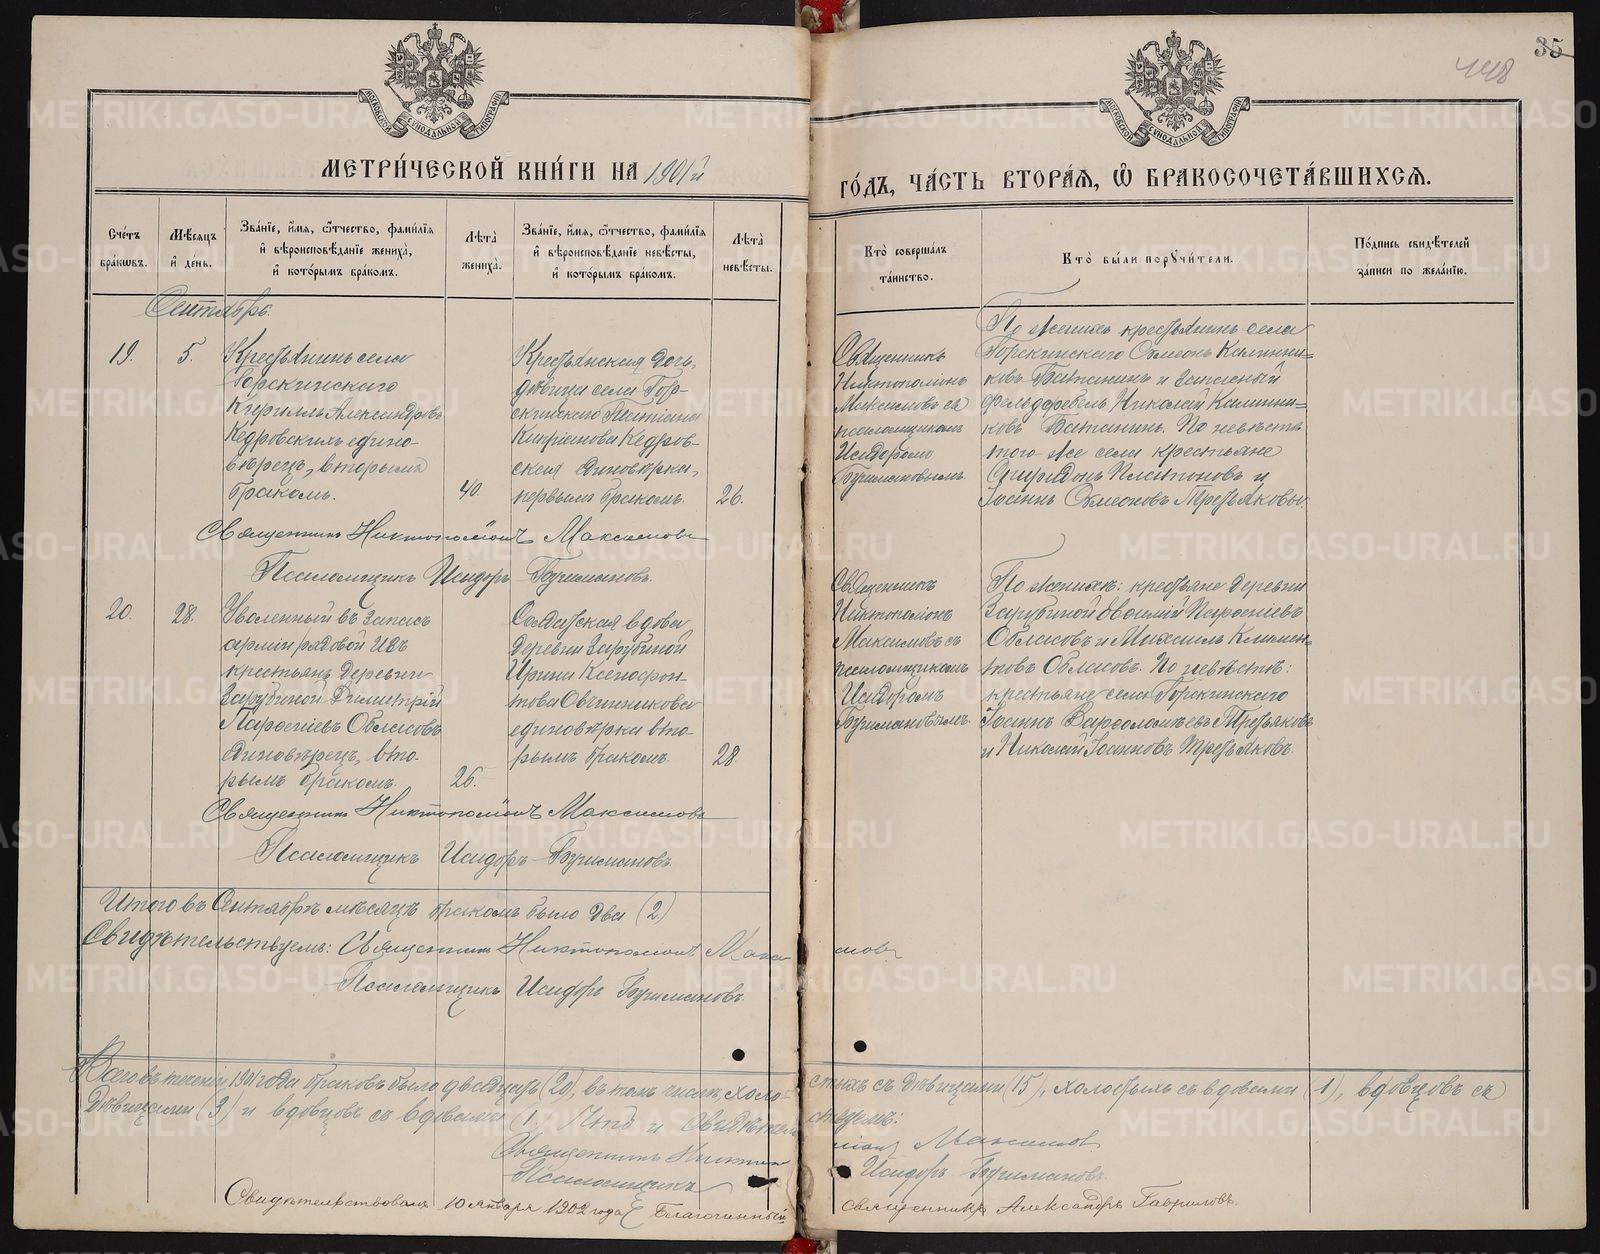 35
448
МЕТРИ́ЧЕСКОЙ КНИ́ГИ НА 1901й
ГО́ДЪ, ЧА́СТЬ ВТОРА́Я, Ѽ БРАКОСОЧЕТА́ВШИХСЯ.
Сче́тъ бра́кѡвъ.
Мѣ́сяцъ и҆ де́нь.
Зва́нїе, и҆́мя, ѻ҆́тчество, фами́лїя
и҆ вѣроисповѣ́данїе жениха̀,
и҆ кото́рымъ бра́комъ.
Лѣ́та жениха̀.
Зва́нїе, и҆́мя, ѻ҆́тчество, фами́лїя
и҆ вѣроисповѣ́данїе невѣ́сты,
и҆ кото́рымъ бра́комъ.
Лѣ́та невѣ́сты.
Кто̀ соверша́лъ та́инство.
Кто̀ бы́ли порꙋчи́тели.
По́дпись свидѣ́телей
за́писи по жела́нїю.
Сентябрь.
19.
5.
Крестьянинъ села
Горскинскаго
Кириллъ Александровъ
Кедровскихъ едино-
вѣрецъ, вторымъ
бракомъ.
40.
Крестьянская дочь,
дѣвица села Гор-
скинскаго Татіана
Кипріанова Кедров-
ская единовѣрка,
первымъ бракомъ.
26.
Священникъ
Никтополіонъ
Максимовъ съ
псаломщикомъ
Исидоромъ
По женихѣ крестьянинъ села
Горскинскаго Симеонъ Калинни=
ковъ Ватанинъ и запасный
фельдфебель Николай Калинни=
ковъ Ватанинъ. По невѣстѣ
того же села крестьяне
Спиридонъ Платоновъ и
Іоаннъ Симеоновъ Третьяковы.
Священникъ Никтополіонъ Максимовъ
Псаломщикъ Исидоръ
20.
28.
Уволенный въ запасъ
арміи рядовой изъ
крестьянъ деревни
Зарубиной Димитрій
Парѳеніевъ Обласовъ
единовѣрецъ, вто-
рымъ бракомъ.
26.
Солдатская вдова
деревни Зарубиной
Ирина Ксенофон-
това Овчинникова
единовѣрка вто-
рымъ бракомъ.
28.
Священникъ
Никтополіонъ
Максимовъ съ
псаломщикомъ
Исидоромъ
По женихѣ: крестьяне деревни
Зарубиной Василій Парѳеніевъ
Обласовъ и Михаилъ Климен-
товъ Обласовъ. По невѣстѣ:
крестьяне села Горскинскаго
Іоаннъ Варѳоломѣевъ Третьяковъ
и Николай Іоанновъ Третьяковъ.
Священникъ Никтополіонъ Максимовъ
Псаломщикъ Исидоръ
Итого въ Сентябрѣ мѣсяцѣ браковъ было два (2)
Свидѣтельствуемъ: Священникъ Никтополіонъ Максимовъ
Псаломщикъ Исидоръ
Всего въ теченіи 1901 года браковъ было двадцать (20), въ томъ числѣ холо-
стыхъ съ дѣвицами (15), холостыхъ съ вдовами (1), вдовцовъ съ
дѣвицами (3) и вдовцовъ съ вдовами (1)
Священникъ Никтополіонъ Максимовъ
Псаломщикъ Исидоръ
Свидѣтельствовалъ 10 января 1902 года Благочинный
священникъ Александръ Гавриловъ.
METRIKI.GASO-URAL.RU